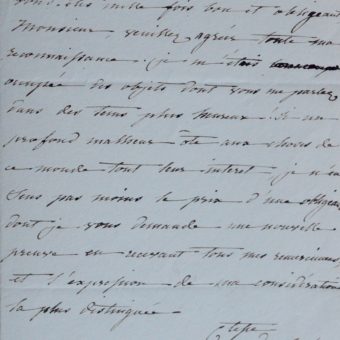 vous êtes mille fois bon et obligeant
Monsieur veuillez agréer toute ma
reconnaissance. je m'étais beaucoup
occupée des objets dont vous me parlez
dans des tems plus heureux ! Si un
profond malheur ôte aux choses de
ce monde tout leur interet, je n'en
sens pas moins le prix d'une obligeance
dont je vous demande une nouvelle
preuve en recevant tous mes remerciemens
et l'expression de ma considération
la plus distinguée
Ctesse